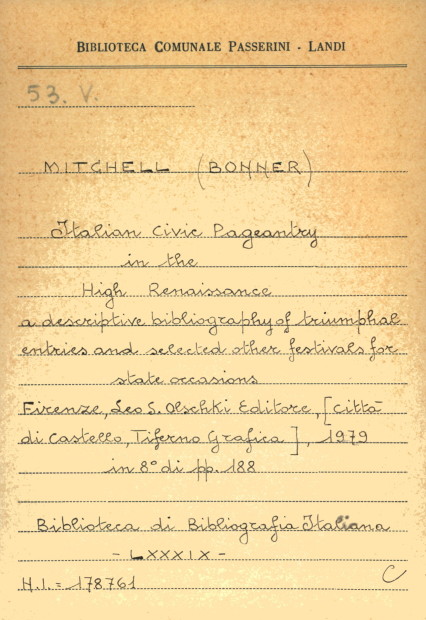 BIBLIOTECA COMUNALE PASSERINI - LANDI
53. V.
MITCHELL (BONNER)
Italian Civic Pageantry
in the
High Renaissance
a descriptive bibliography of triumphal
entries and selected other festivals for
state occasions
Firenze, Leo S. Olschki Editore, [Città
di Castello, Tiferno Grafica], 1979
in 8° di pp. 188
Biblioteca di Bibliografia Italiana
- LXXXIX -
N.I. = 178761
C